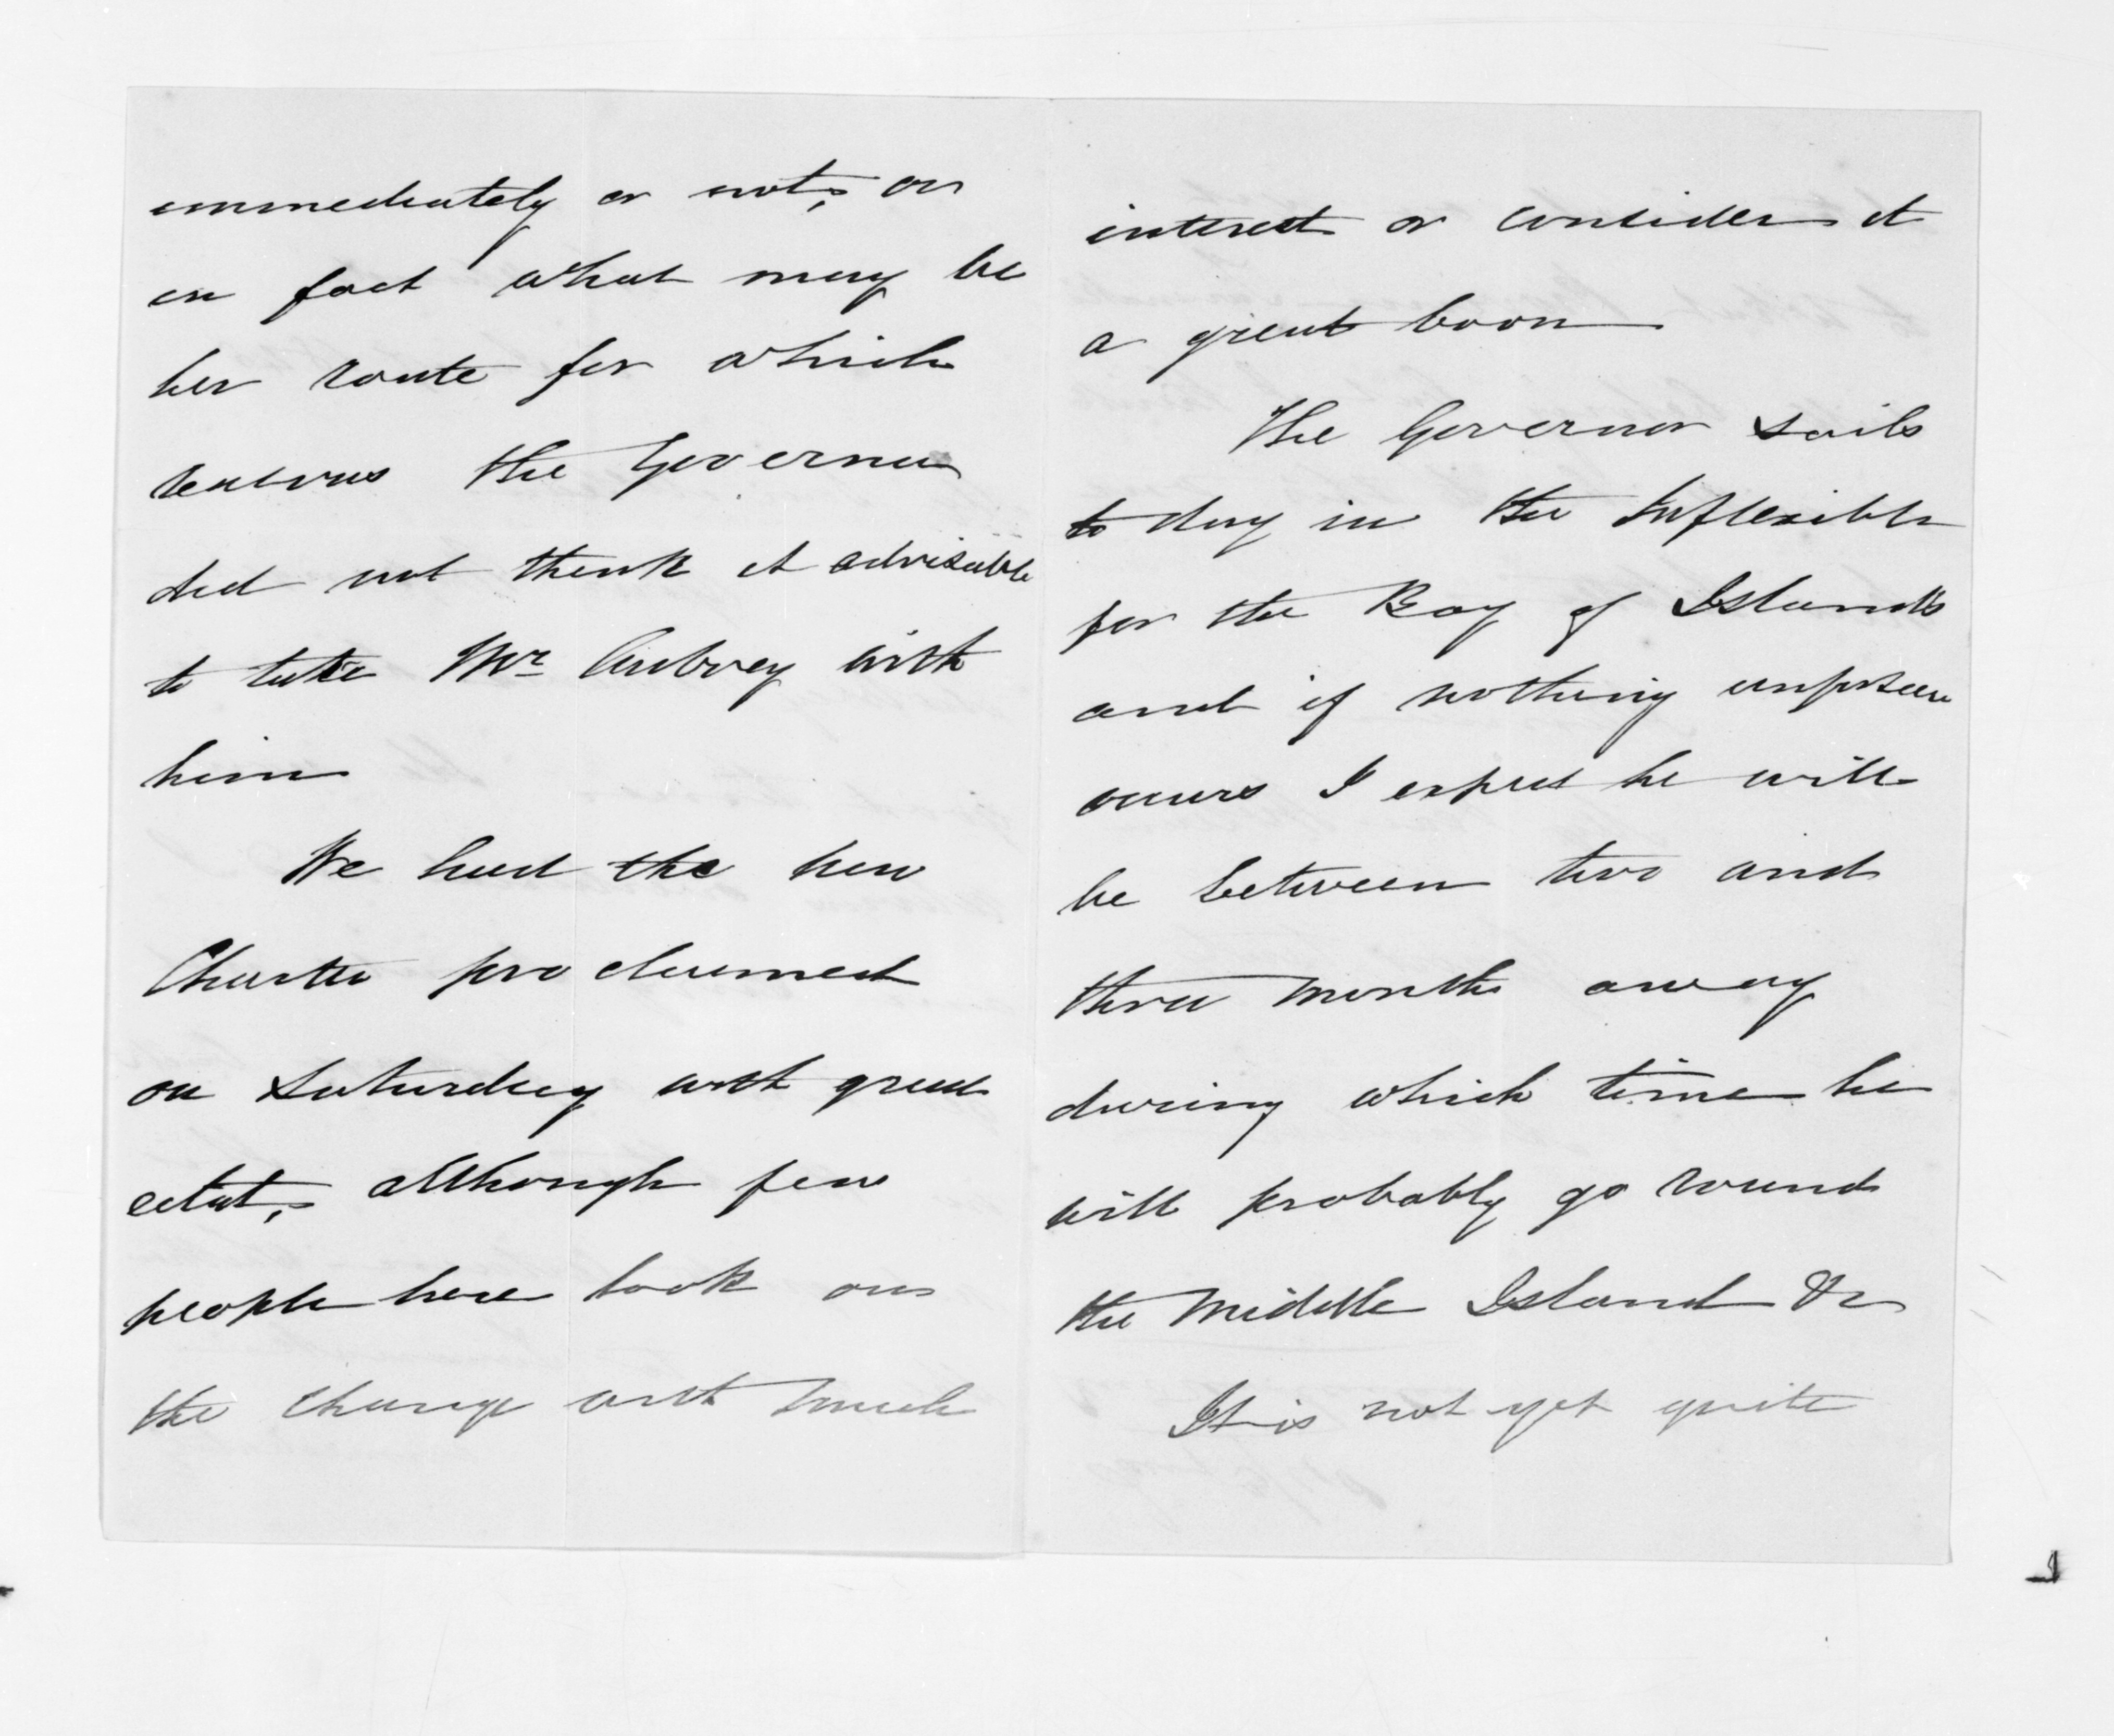 immediately or not, or
in fact what may be
her route for which
reasons the Governor
did not think it advisable
to take Mr Aubrey with
him
We had the new
Charter proclaimed
on Saturday with great
eclat, although few
people here look on
the change with much
interest or consider it
a great boon
The Governor sails
to day in the Inflexible
for the Bay of Islands
and if nothing unforseen
occurs I expect he will
be between two and
three months away
during which time he
will probably go round
the Middle Island &c
It is not yet quite